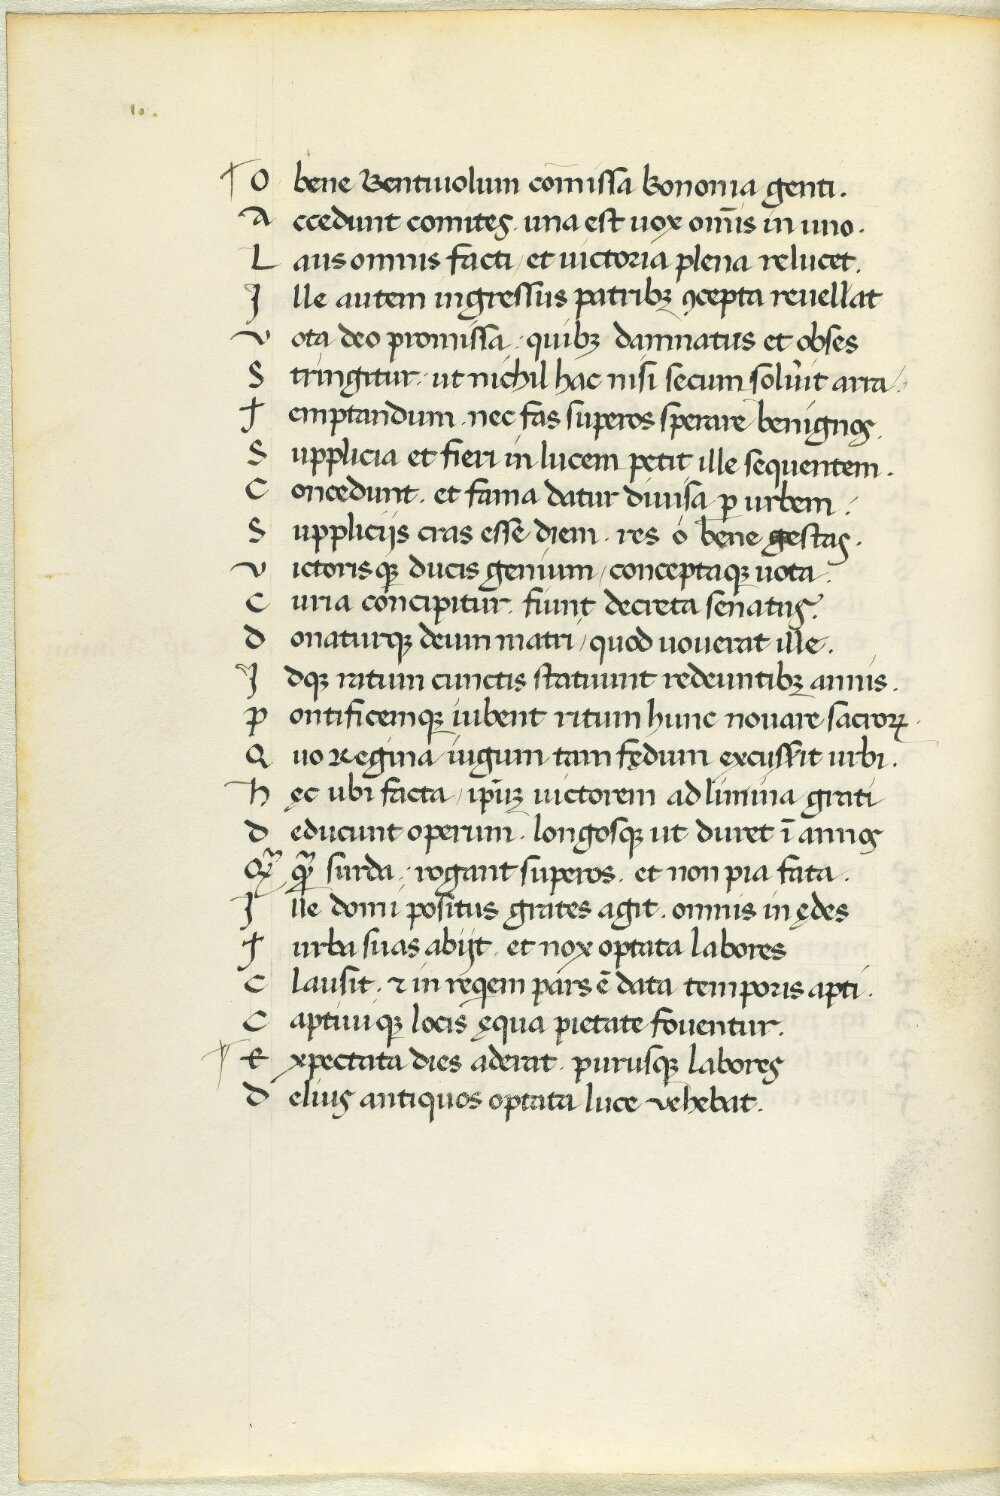 10.
O bene Bentiuolum com̄issa Bononia genti.
A ccedunt comites. una est uox om̄is in uno.
L aus omnis facti / et uictoria plena relucet.
I lle autem ingressus patribꝫ ꝯcepta reuellat
V ota deo promissa. quibꝫ damnatus et obses
S tringitur. ut nichil hac nisi secum soluit arra.
T emptandum. nec fas superos sperare benignos.
S upplicia et fieri in lucem petit ille sequentem.
C oncedunt. et fama datur diuisa ꝑ urbem.
S upplicijs cras esse diem. res ó bene gestas.
V ictorisqꝫ ducis genium / conceptaqꝫ uota.
C uria concipitur. fiunt decreta senatus.
D onaturqꝫ deum matri / quod uouerat ille.
I dqꝫ ratum cunctis statuunt redeuntibꝫ annis.
P ontificemqꝫ iubent ritum hunc nouare sacroꝝ.
Q uo Regina iugum tam fędum excussit urbi.
H ęc ubi facta / ip̄iꝰ uictorem ad limina grati
D educunt operum. longosqꝫ ut duret ī annos
surda. rogant superos. et non pia fata.
I lle domi positus grates agit. omnis in ędes
T urba suas abijt. et nox optata labores
C lausit. ⁊ in reqem pars ē data temporis apti.
C aptiuiqꝫ locis ęqua pietate fouentur.
E xpectata dies aderat. purusqꝫ labores
D elius antiquos optata luce vehebat.